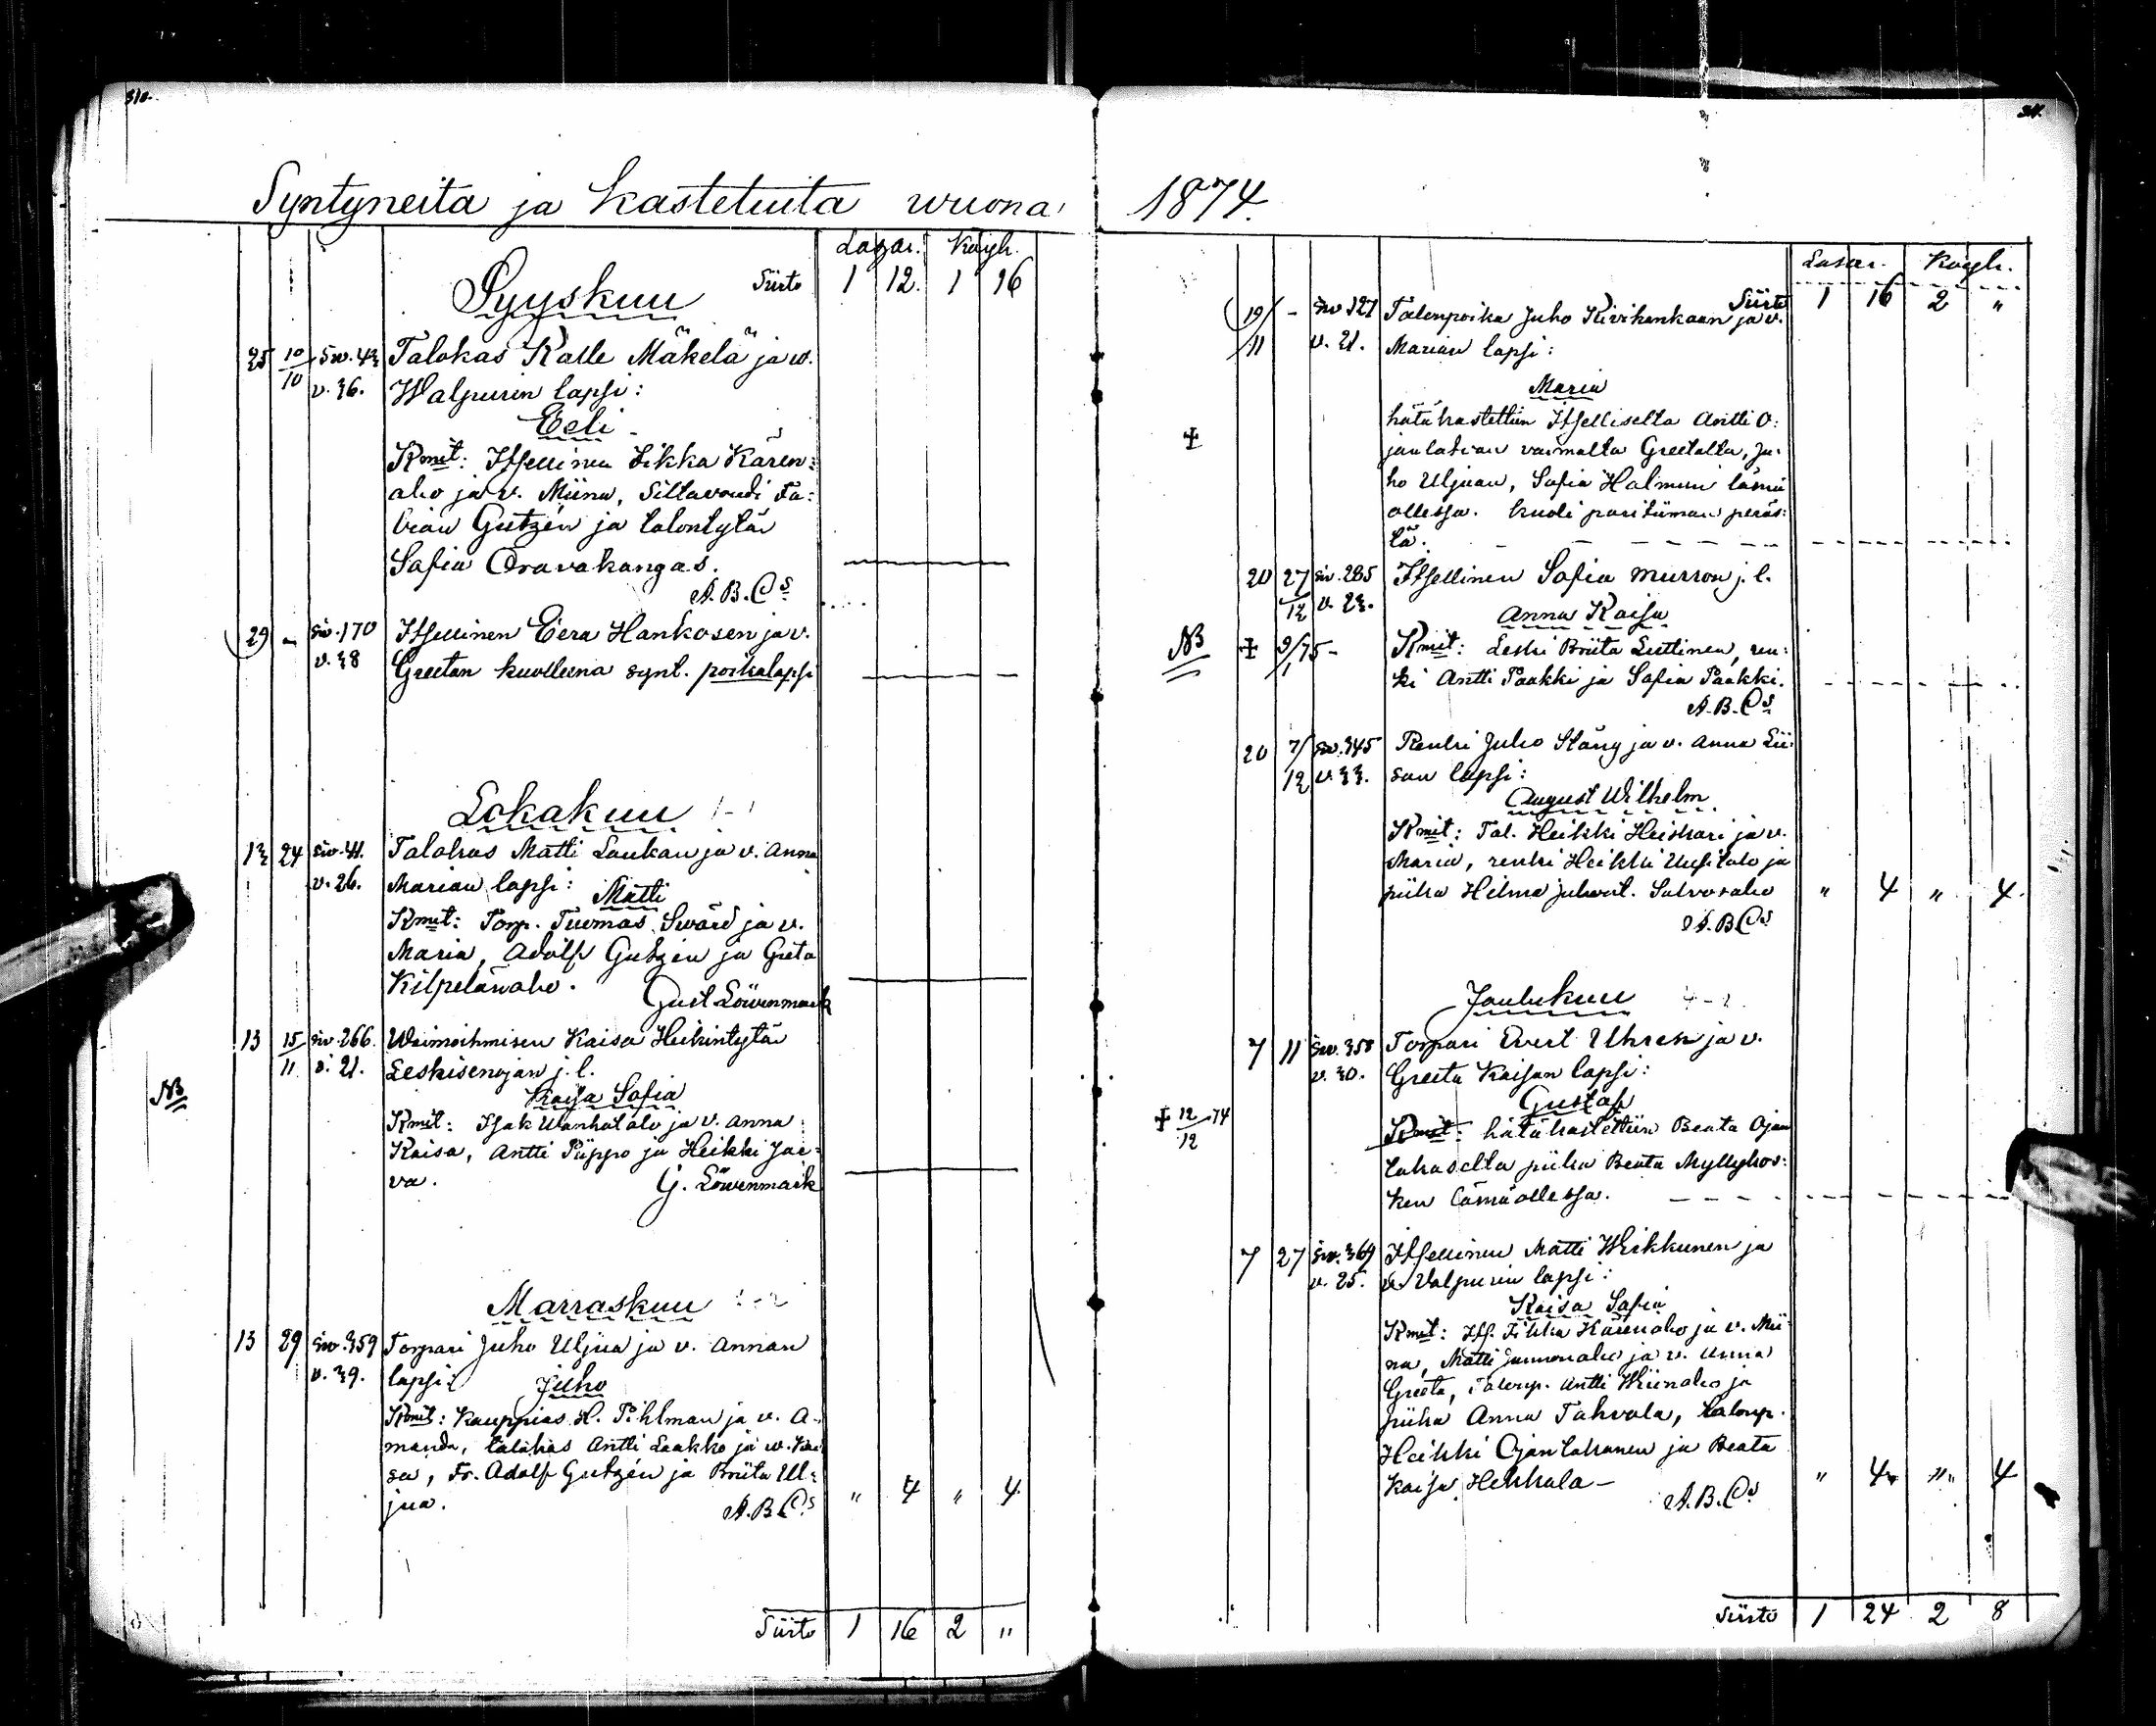 310.
Syntyneitä ja Kastetuita wuona
Lazar. Kuyh.
Syyskuu Siirto 1 12. 1 16
25 10/10 Siv. 43 Talokas Kalle Mäkelä ja w.
v. 36. Walpurin lapsi:
Eeli
Kmit: Itsellinen Iikka Kären:
aho ja v. Miina, Siltavouti Fa:
bian Gutzén ja talontytär
Safia Oravakangas.
A. B. Cs
29 - siv. 170 Itsellinen Eera Hankosen ja v.
v. 38 Greetan kuolleena synt. poikalapsi
Lokakuu
13 24 siv. 41. Talokas Matti Laukan ja v. Anna
v. 26. Marian lapsi: Matti
Kmit: Torp. Tuomas Swärd ja v.
Maria, Adolf Gutzén ja Greta
Kilpelänaho.
Gust Löwenmark
13 15/11 siv. 266. Waimoihmisen Kaisa Heikintytär
v. 21. Leskisenojan j. l.
NB
Kaisa Sofia
Kmit: Isak Wanhatalo ja v. Anna
Kaisa, Antti Piippo ja Heikki Jar:
va. G. Löwenmark
Marraskuu
13 29 siv. 359 Torpari Juho Uljua ja v. Annan
v. 39. lapsi: Juho
Kmit: Kauppias H. Pihlman ja v. A-
manda, talokas Antti Laakko ja w. Kai
sa, Fr. Adolf Gutzén ja Briita Ul:
jua. A. B. Cs " 4 " 4
Siirto 1 16 2 "
311.
1874.
Lasar. Kuyh.
Siirto 1 16 2 "
19/11 - Siv 327 Talonpoika Juho Kivikankaan ja v.
v. 21. Marian lapsi:
Maria
hätäkastettiin Itselliselta Antti O:
janlatvan vaimolta Greetalta, Ju-
ho Uljuan, Safia Halmeen läsnä
ollessa. kuoli pari tiiman peräs:
tä.
20 27/12 siv. 285 Itsellinen Safia Murron j. l.
v. 23.
Anna Kaisa
NB 9/1 75 - Kmit: Leski Briita Luttinen, ren:
ki Antti Paakki ja Safia Paakki.
A. B. Cs
20 7/12 siv. 345 Renki Juho Stång ja v. Anna Lii
v. 33. san lapsi:
August Wilhelm
Kmit: Tal. Heikki Heiskari ja v.
Maria, renki Heikki Uusitalo ja
piika Helma Juhont. Salvosaho " 4 " 4.
A. B. Cs
Joulukuu
7 11 Siv. 358 Torpari Evert Uhrén ja v.
v. 30. Greeta Kaisan lapsi:
Gustaf
12/12 74 Kmit: hätäkastettiin Beata Ojan
takaselta piika Beata Myllykos:
ken läsnäollessa.
7 27 Siv. 369 Itsellinen Matti Weikkunen ja
v. 25. v. Valpurin lapsi:
Kaisa Safia
Kmit: Its. Iikka Kärenaho ja v. Mii
na, Matti Junnonaho ja v. Anna
Greeta, Talonp. Antti Wiinaho ja
piika Anna Tahvola, talonp.
Heikki Ojantakanen ja Beata
Kaisa Hekkala - " 4 " 4
A. B. Cs
Siirto 1 24 2 8